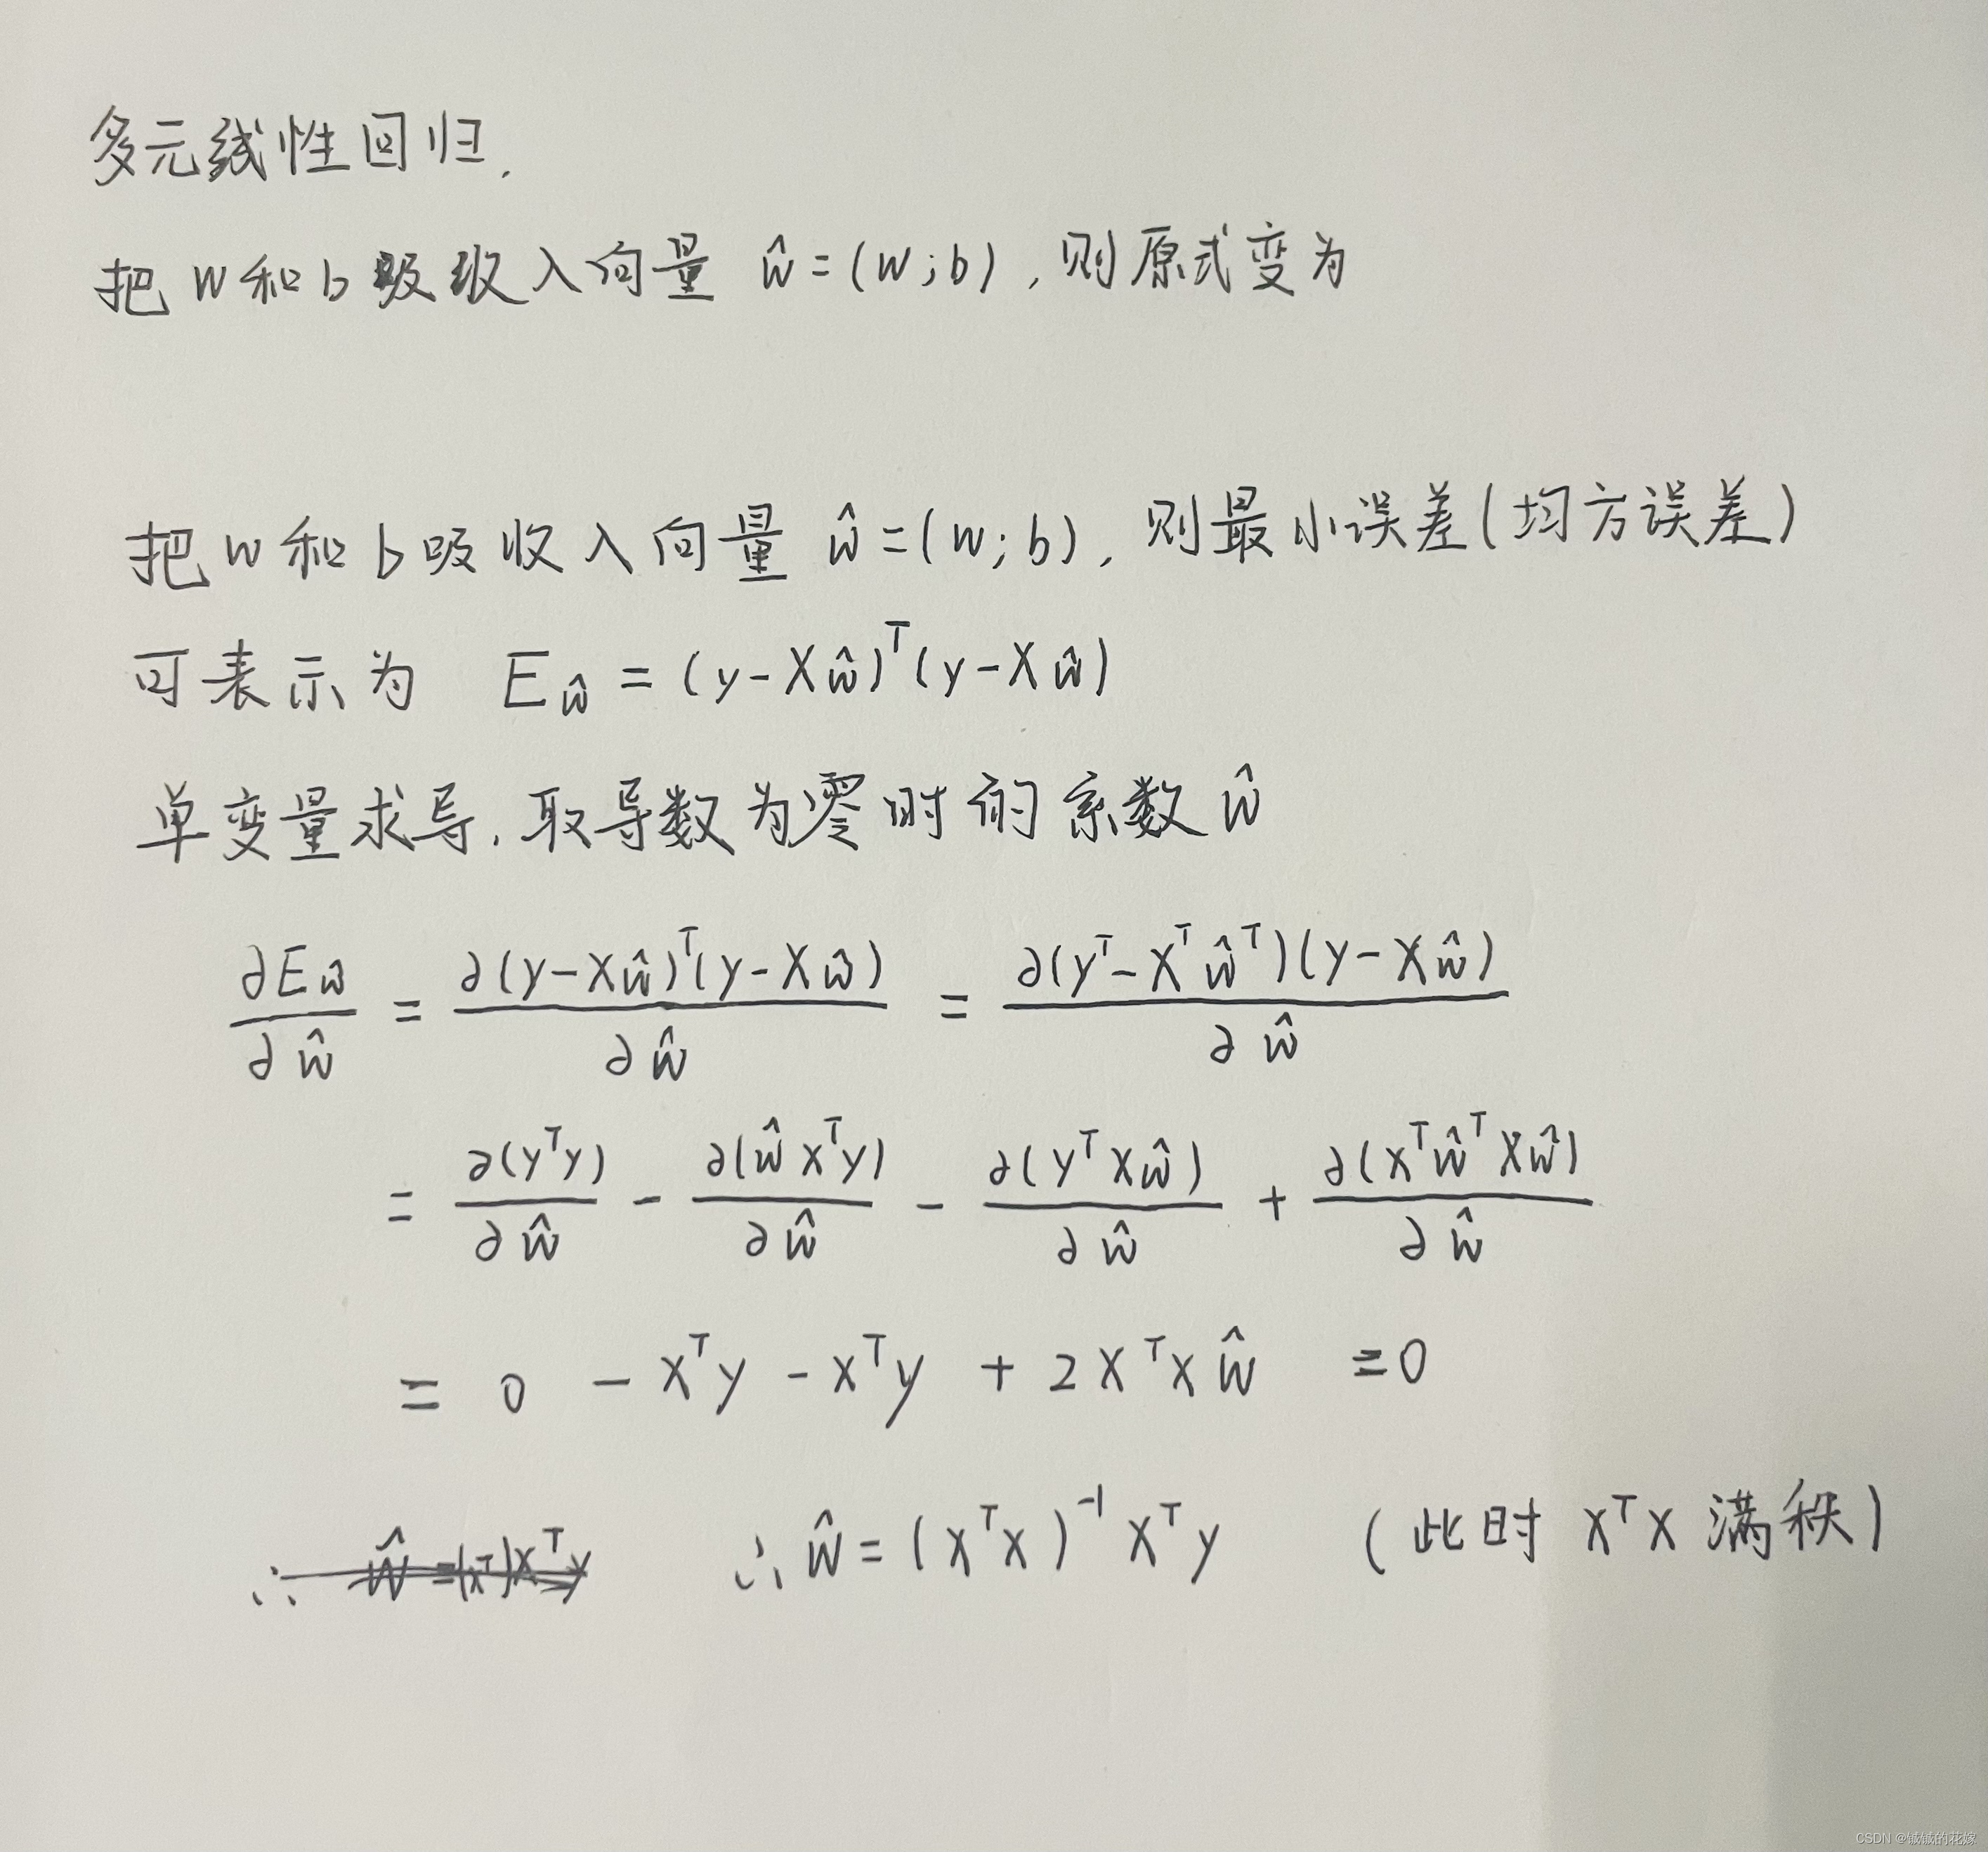 多元线性回归.
把 w 和 b 吸收入向量 ŵ = (w;b),则原式变为
把 w 和 b 吸收入向量 ŵ = (w;b),则最小误差(均方误差)
可表示为 E_ŵ = (y-Xŵ)^T(y-Xŵ)
单变量求导,取导数为零时的系数 ŵ
∂E_ŵ/∂ŵ = ∂(y-Xŵ)^T(y-Xŵ)/∂ŵ = ∂(y^T-X^Tŵ^T)(y-Xŵ)/∂ŵ
= ∂(y^Ty)/∂ŵ - ∂(ŵX^Ty)/∂ŵ - ∂(y^TXŵ)/∂ŵ + ∂(X^Tŵ^TXŵ)/∂ŵ
= 0 - X^Ty - X^Ty + 2X^TXŵ = 0
∴ ŵ = (X^TX)^-1 X^Ty (此时 X^TX 满秩)
CSDN @铖铖的花嫁